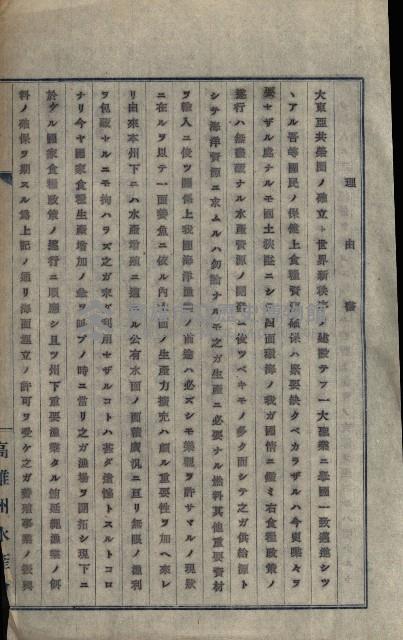 理由書
大東亞共榮圏ノ確立ト世界新秩序ノ建設テフ一大聖業ニ擧國一致邁進シツ
ヽアル吾等國民ノ保健上食糧資源確保ハ緊要缺クベカラザルハ今更喋々ヲ
要セザル處ナルモ國土狹隘ニシテ四面環海ノ我ガ國情ニ鑑ミ右食糧政策ノ
遂行ハ無盡藏ナル水產資源ノ開發ニ俟ツベキモノ多々而シテ之ガ供給源ト
シテ海洋資源ニ求ムルハ勿論ナルモ之ガ生產ニ必要ナル燃料其他重要資材
ヲ輸入ニ俟ツ關係上我國海洋漁業ノ前途ハ必ズシモ樂觀ヲ許サマルノ現狀
ニ在ルヲ以テ一面養魚ニ依ル內水面ノ生產力擴充ハ頗ル重要性ヲ加ヘ來レ
リ由來本州下ニハ水產增殖ニ適スル公有水面ノ面積廣汎ニ亘リ無限ノ漁利
ヲ包藏セルニモ拘ハラズ之ガ未ダ利用セザルコトハ甚ダ遺憾トスルトコロ
ナリ今ヤ國家食糧生產增加ノ急ヲ呼ブノ時ニ當リ之ガ漁場ヲ開拓シ現下ニ
於ケル國家食糧政策ノ遂行ニ順應シ且ツ州下重要漁業タル鮪延繩漁業ノ餌
料ノ確保ヲ期スル爲上記ノ通リ海面埋立ノ許可ヲ受ケ之ガ養殖事業ノ振興
高雄州水產